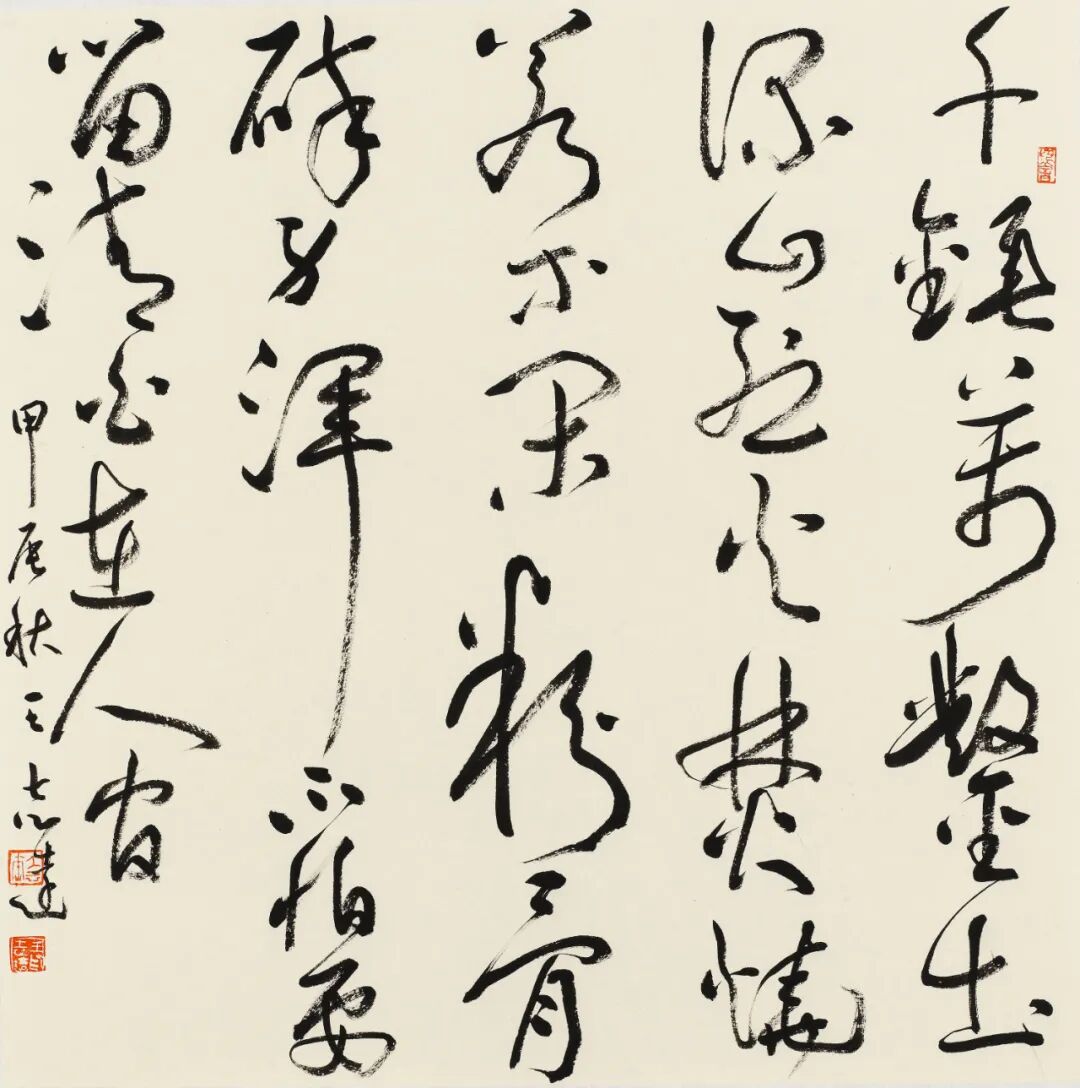 千錘萬鑿出
深山烈火焚燒
若等閑粉骨
碎身渾不怕要
留清白在人間
甲辰秋王志達